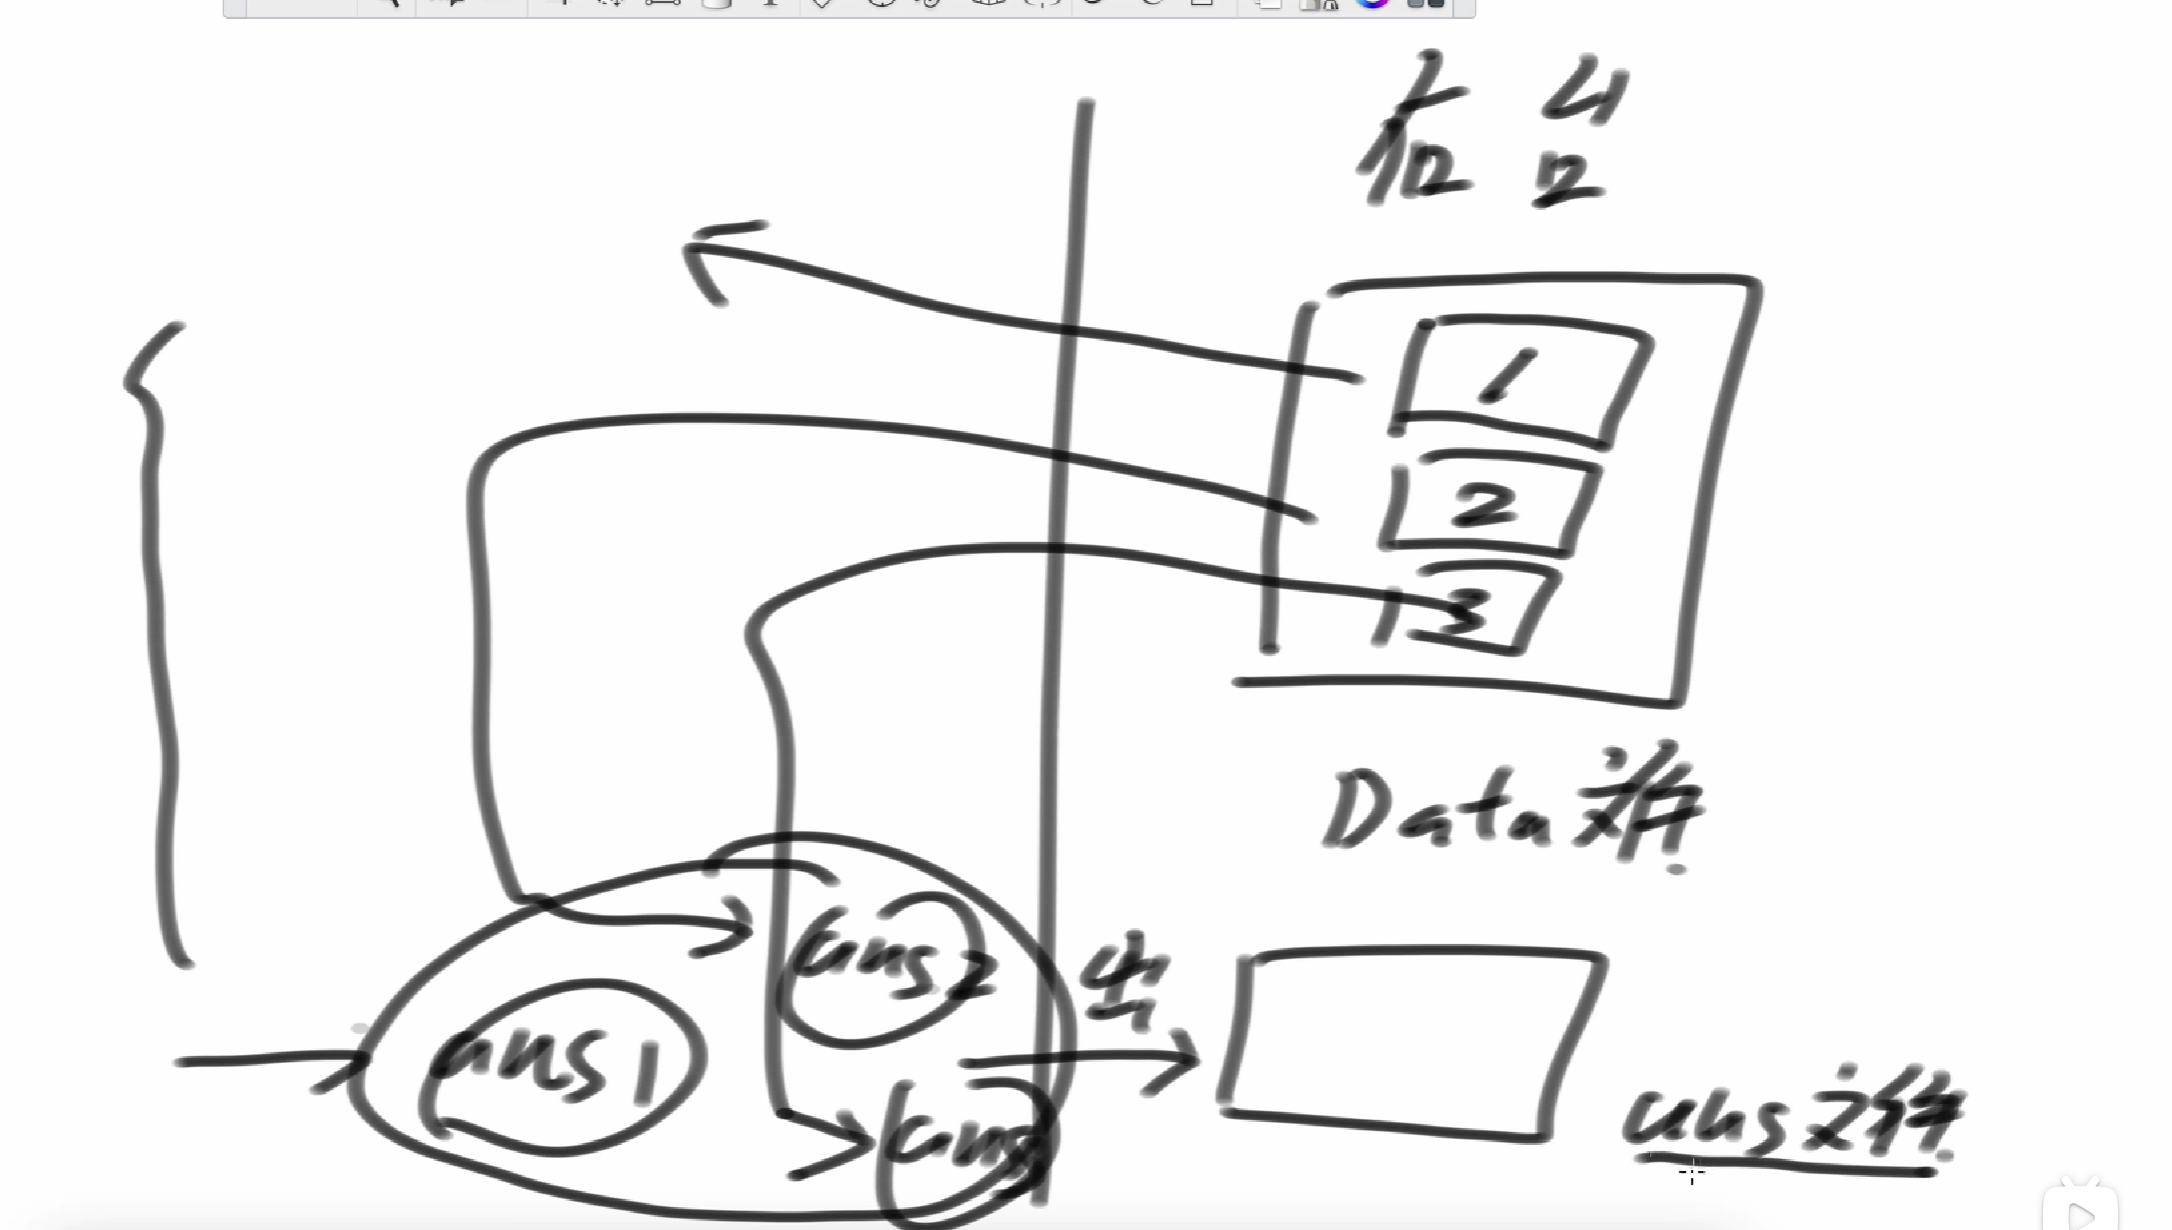 后台
1
2
3
Data文件
ans2
出
ans1
ans3
ans文件